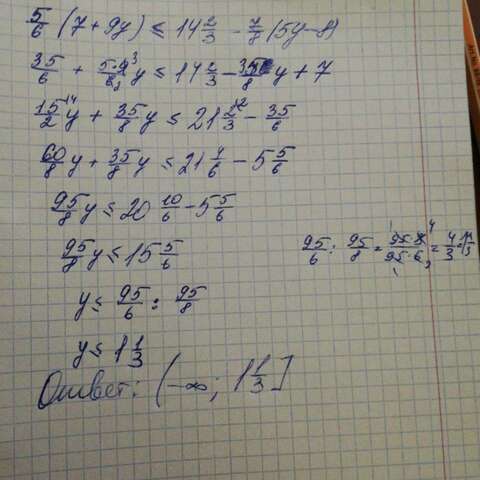 5/6 (7 + 9y) ≤ 14 2/3 - 7/8 (5y - 8)
35/6 + 5·9 3/6 2 y ≤ 14 2/3 - 35/8 y + 7
15/2 \4 y + 35/8 y ≤ 21 2/3 \2 - 35/6
60/8 y + 35/8 y ≤ 21 4/6 - 5 5/6
95/8 y ≤ 20 10/6 - 5 5/6
95/8 y ≤ 15 5/6
95/6 : 95/8 = 95·8/95·6 = 4/3 = 1 1/3
y ≤ 95/6 : 95/8
y ≤ 1 1/3
Ответ: (-∞; 1 1/3]